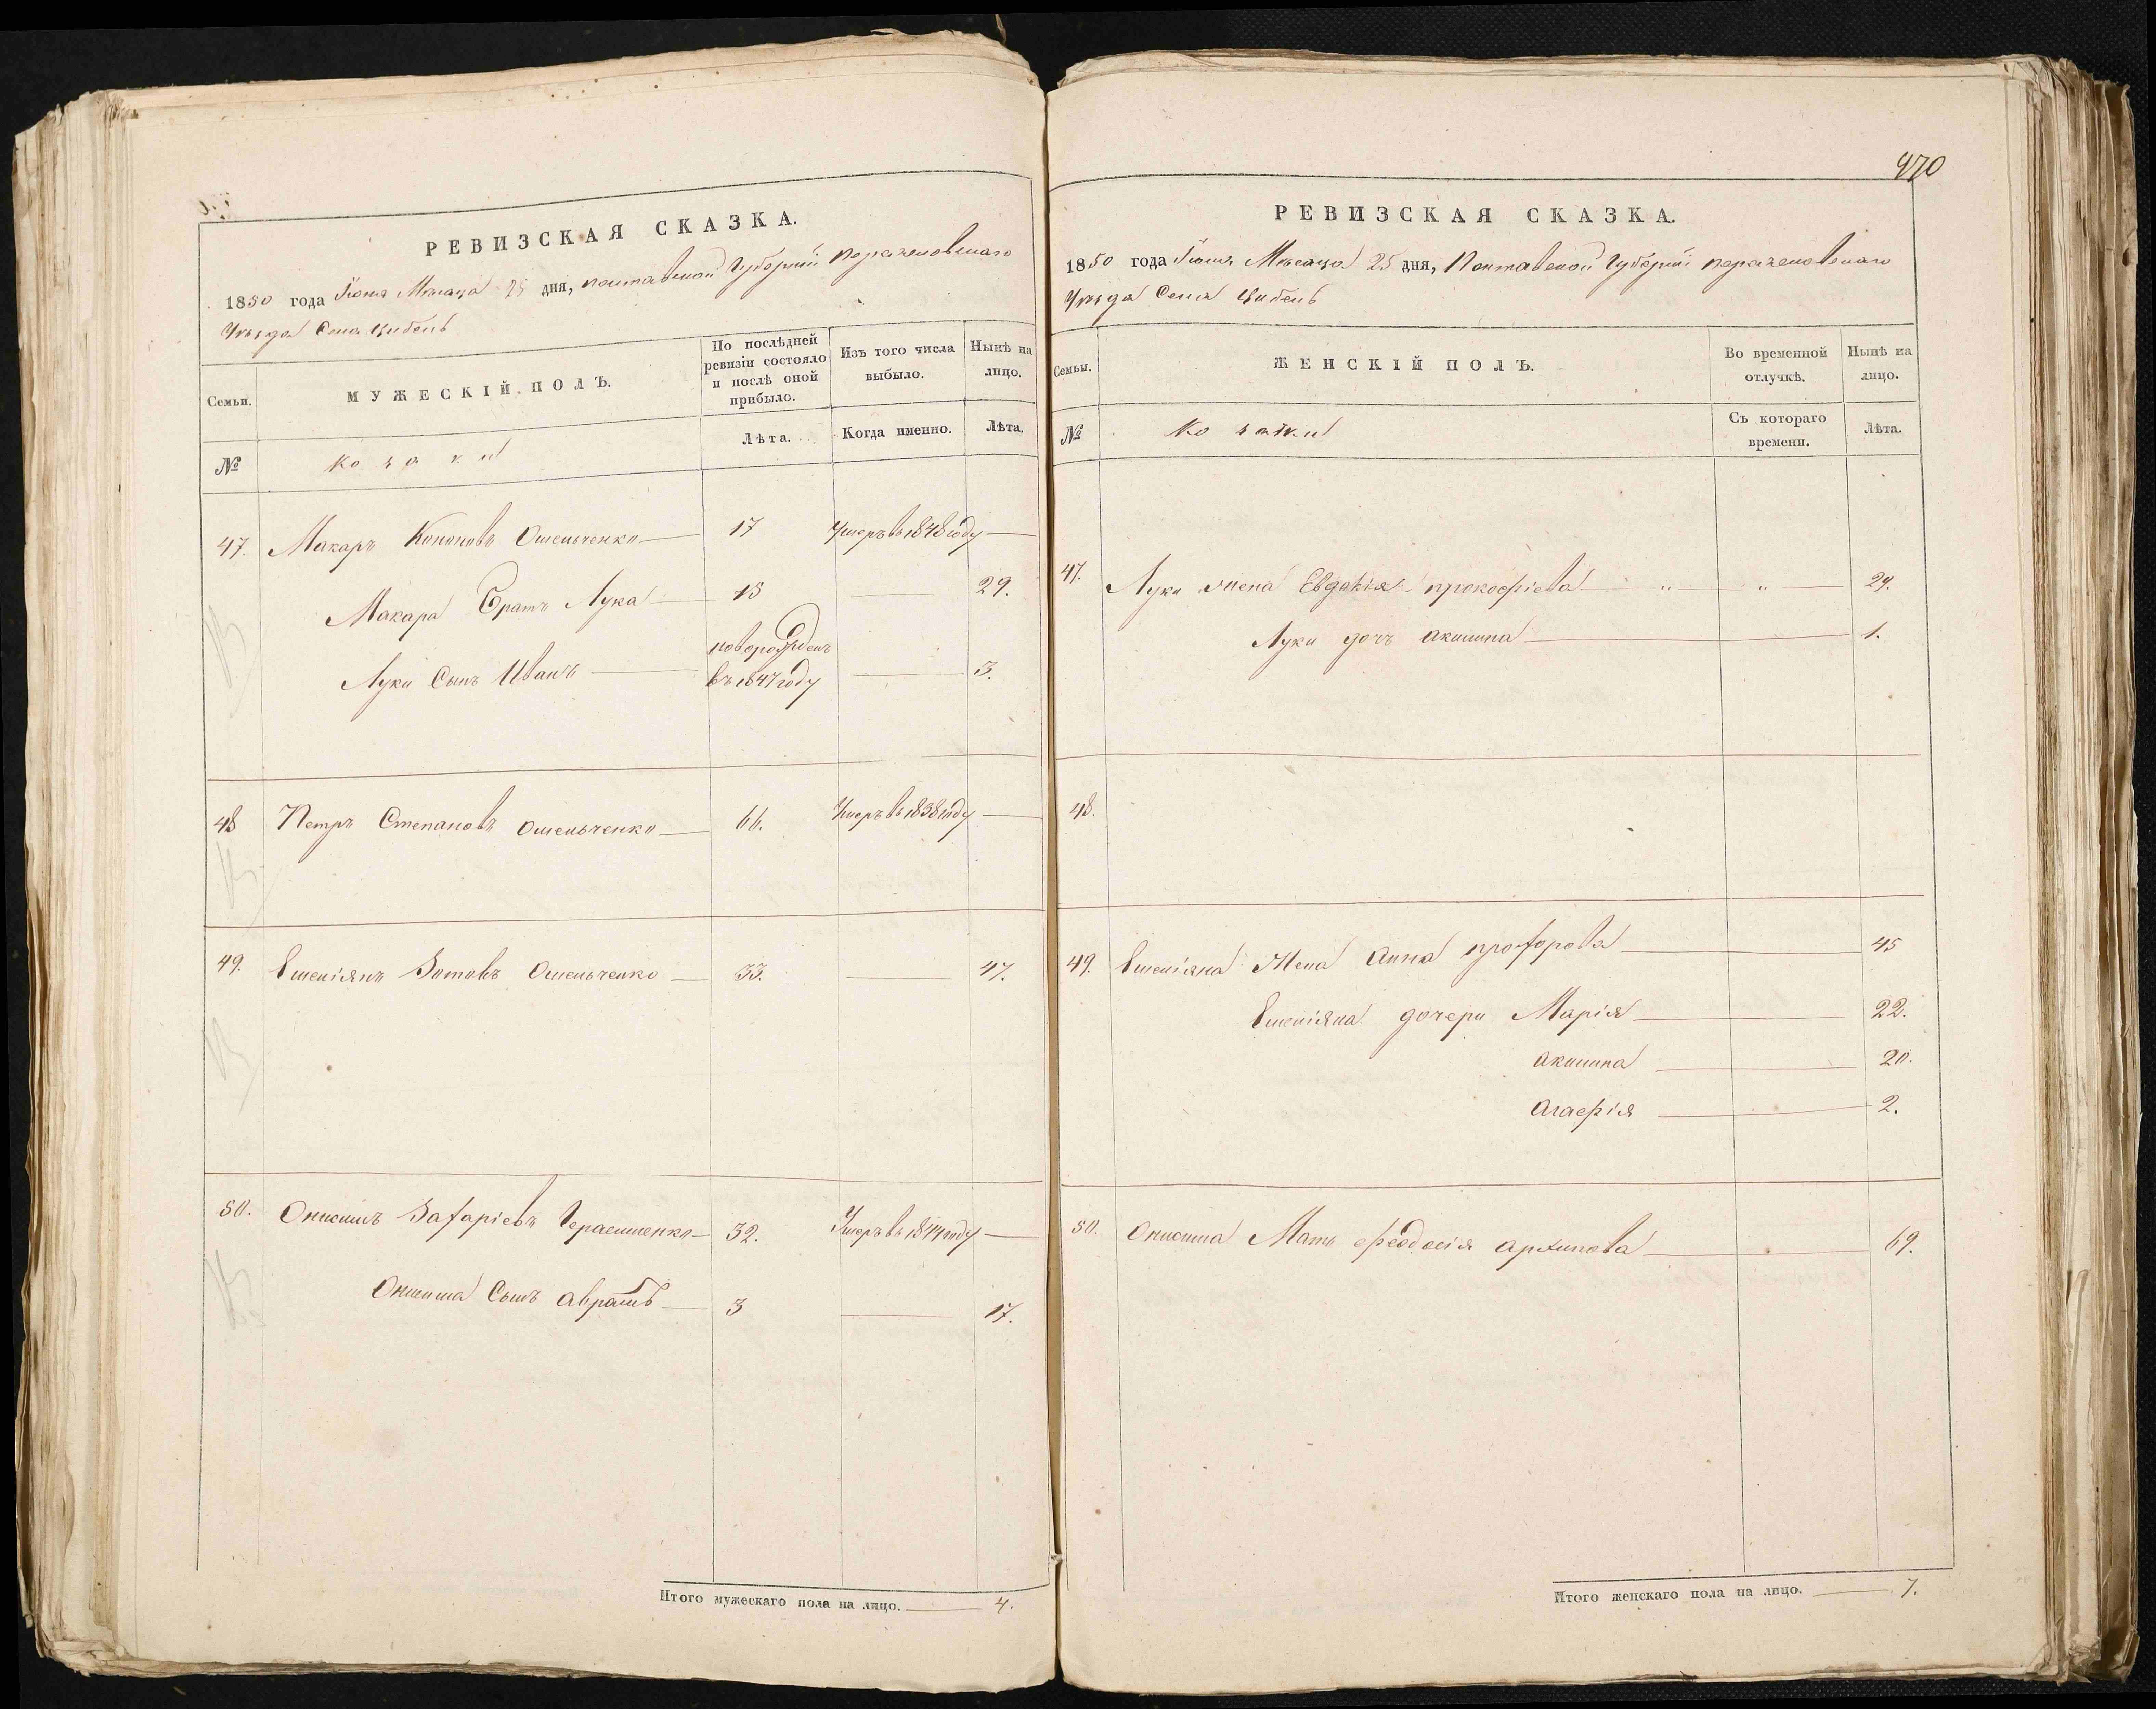 РЕВИЗСКАЯ СКАЗКА.
1850 года Іюня Мѣсяца 25 дня, Полтавской Губерніи переяславскаго
Уѣзда Села Цибель
Семьи.
МУЖЕСКІЙ ПОЛЪ.
По послѣдней ревизіи состояло и послѣ оной прибыло.
Изъ того числа выбыло.
Нынѣ на лицо.
№
козаки
Лѣта.
Когда именно.
Лѣта.
47. Макаръ Кононовъ Омельченко 17 Умеръ въ 1848 году
Макара Братъ Лука 15 29.
новорожденъ
Луки Сынъ Иванъ въ 1847 году 3.
48 Петръ Степановъ Омельченко 66. Умеръ въ 1838 году
49. Емеліянъ Зотовъ Омельченко 33. 47.
50. Онисимъ Захаріевъ Герасименко 32. Умеръ въ 1844 году
Онисима Сынъ Аврамъ 3 17.
Итого мужескаго пола на лицо. 4.
470
РЕВИЗСКАЯ СКАЗКА.
1850 года Іюня Мѣсяца 25 дня, Полтавской Губерніи переяславскаго
Уѣзда Села Цибель
Семьи.
ЖЕНСКІЙ ПОЛЪ.
Во временной отлучкѣ.
Нынѣ на лицо.
№
козачки
Съ котораго времени.
Лѣта.
47. Луки жена Евдокія прокофіева " " 29.
Луки дочь акилина 1.
48.
49. Емеліяна Жена Анна прохорова 45
Емеліяна дочери Марія 22.
акилина 20.
Агафія 2.
50. Онисима Мать Феодосія архипова 69.
Итого женскаго пола на лицо. 7.